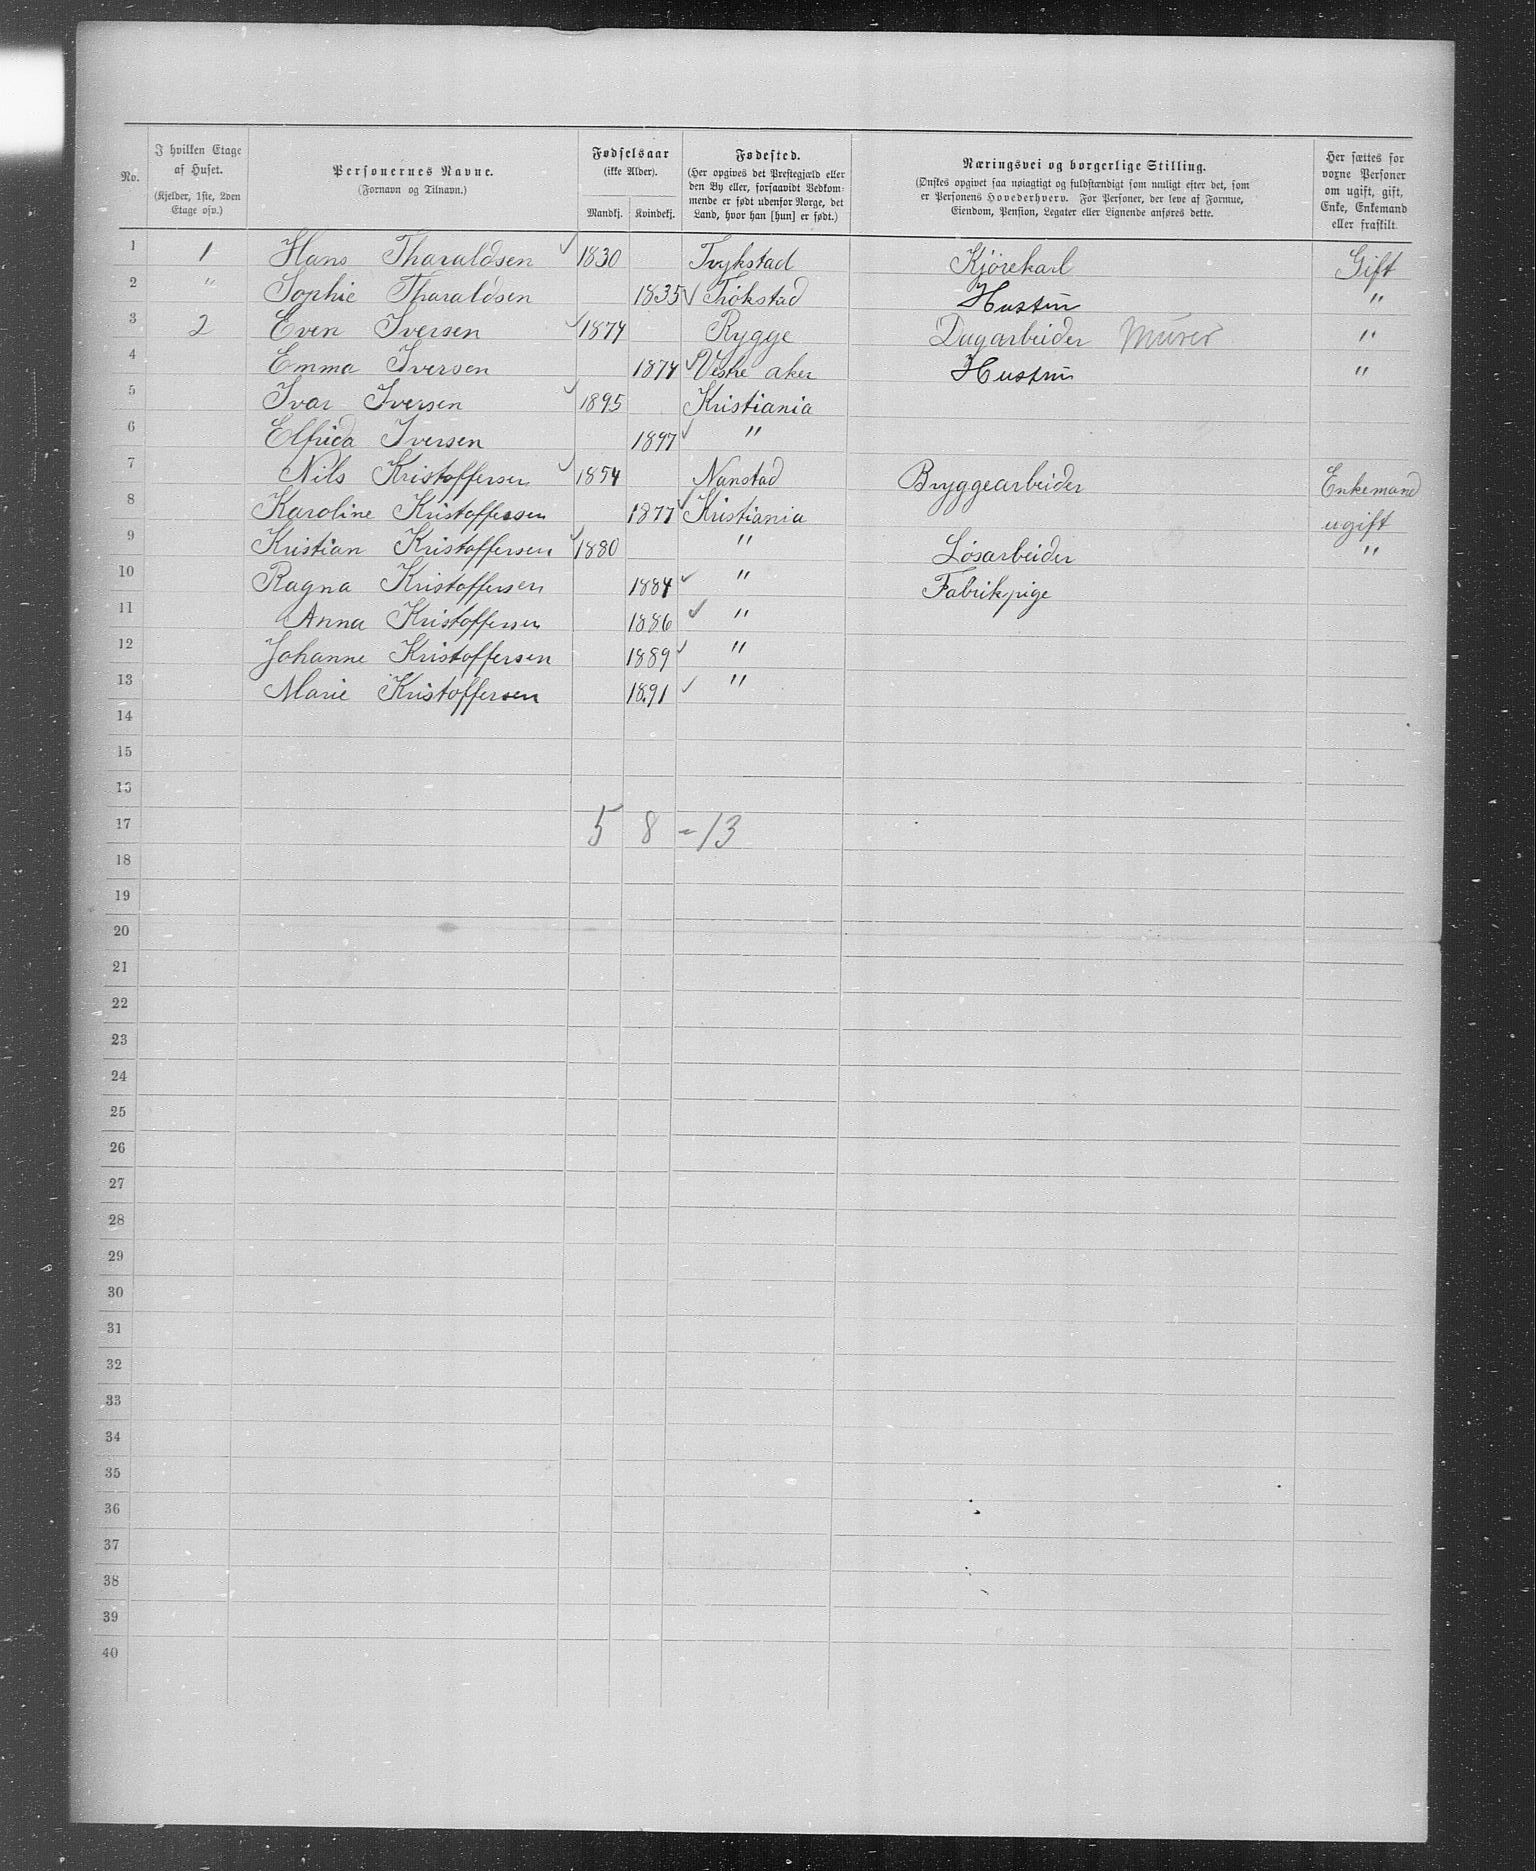 No. I hvilken Etage af Huset. (Kjelder, 1ste, 2den Etage osv.) Personernes Navne. (Fornavn og Tilnavn.) Fødselsaar (ikke Alder). Mandkj. Kvindekj. Fødested. (Her opgives det Prestegjæld eller den By eller, forsaavidt Vedkommende er født udenfor Norge, det Land, hvor han [hun] er født.) Næringsvei og borgerlige Stilling. (Ønskes opgivet saa nøiagtigt og fuldstændigt som muligt efter det, som er Personens Hovederhverv. For Personer, der leve af Formue, Eiendom, Pension, Legater eller Lignende anføres dette. Her sættes for voxne Personer om ugift, gift, Enke, Enkemand eller fraskilt.
1 1 Hans Tharaldsen 1830 Trykstad Kjörekarl Gift
2 " Sophie Tharaldsen 1835 Trökstad Hustru "
3 2 Even Iversen 1874 Rygge Dagarbeider Murer "
4 Emma Iversen 1874 Vestre aker Hustru "
5 Ivar Iversen 1895 Kristiania
6 Elfrida Iversen 1897 "
7 Nils Kristoffersen 1854 Nanstad Bryggearbeider Enkemand
8 Karoline Kristoffersen 1877 Kristiania ugift
9 Kristian Kristoffersen 1880 " Lösarbeider "
10 Ragna Kristoffersen 1884 " Fabrikpige
11 Anna Kristoffersen 1886 "
12 Johanne Kristoffersen 1889 "
13 Marie Kristoffersen 1891 "
14
15
16
17 5 8 - 13
18
19
20
21
22
23
24
25
26
27
28
29
30
31
32
33
34
35
36
37
38
39
40